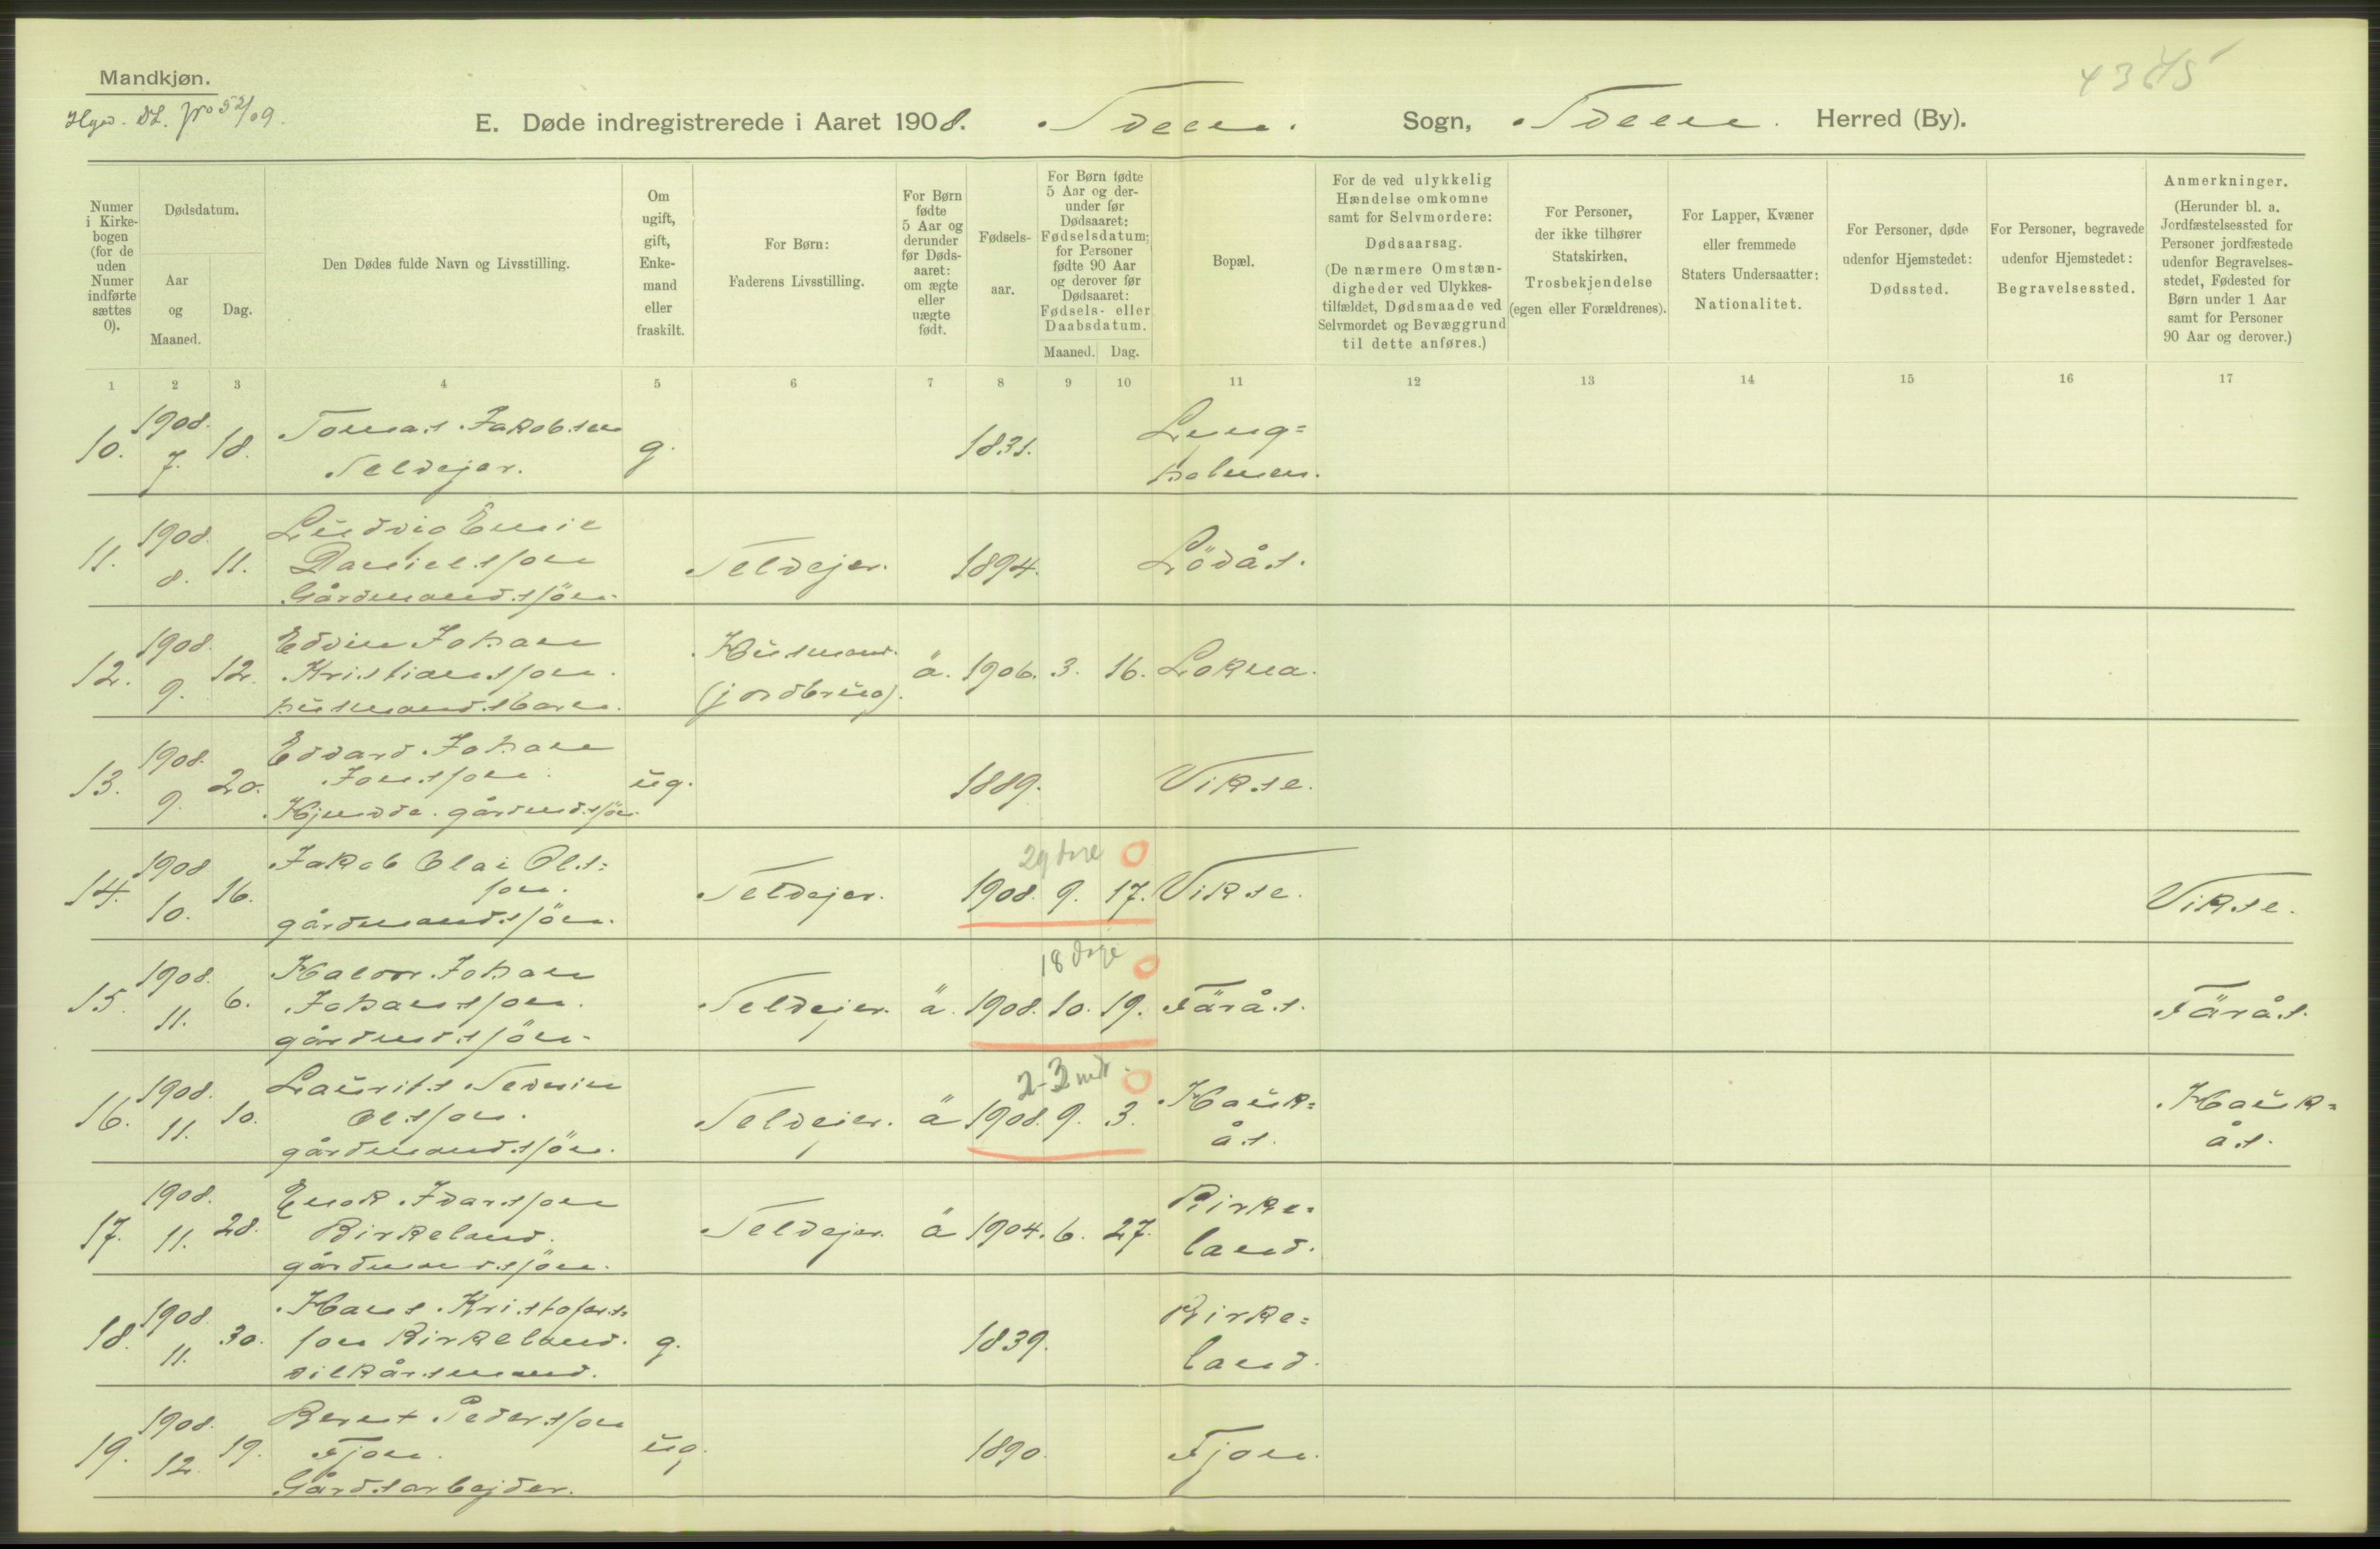 Mandkjøn.
No 52/09.
4385
E. Døde indregistrerede i Aaret 1908. Sveen. Sogn, Sveen. Herred (By).
Numer i Kirke-bogen (for de uden Numer indførte sættes 0).
Dødsdatum.
Aar og Maaned.
Dag.
Den Dødes fulde Navn og Livsstilling.
Om ugift, gift, Enke-mand eller fraskilt.
For Børn: Faderens Livsstilling.
For Børn fødte 5 Aar og derunder før Døds-aaret: om ægte eller uægte født.
Fødsels-aar.
For Børn fødte 5 Aar og der-under før Dødsaaret: Fødselsdatum; for Personer fødte 90 Aar og derover før Dødsaaret: Fødsels- eller Daabsdatum.
Maaned. Dag.
Bopæl.
For de ved ulykkelig Hændelse omkomne samt for Selvmordere: Dødsaarsag. (De nærmere Omstæn-digheder ved Ulykkes-tilfældet, Dødsmaade ved Selvmordet og Bevæggrund til dette anføres.)
For Personer, der ikke tilhører Statskirken, Trosbekjendelse (egen eller Forældrenes).
For Lapper, Kvæner eller fremmede Staters Undersaatter: Nationalitet.
For Personer, døde udenfor Hjemstedet: Dødssted.
For Personer, begravede udenfor Hjemstedet: Begravelsessted.
Anmerkninger. (Herunder bl. a. Jordfæstelsessted for Personer jordfæstede udenfor Begravelses-stedet, Fødested for Børn under 1 Aar samt for Personer 90 Aar og derover.)
1 2 3 4 5 6 7 8 9 10 11 12 13 14 15 16 17
10. 1908. 7. 18. Tomas Jakobsen g. 1831. Lyng=
Selvejer. holmen.
11. 1908. 8. 11. Ludvig Emil
Danielsson Selvejer. 1894. Lödås.
Gårdmandssön.
12. 1908. 9. 12. Edvin Johan Husmand.
Kristiansson. (jordbrug). ä. 1906. 3. 16. Lokna.
husmandsbarn.
13. 1908. 9. 20. Edvard Johan
Jonsson. ug. 1889. Vikse.
gårdmdssön.
29 dage
14. 1908 10. 16. Jakob Olai Ols=
son. Selvejer. 1908. 9. 17. Vikse. Vikse.
gårdmandssön.
18 dage
15. 1908. 11. 6. Halvor Johan
Johansson. Selvejer. ä. 1908. 10. 19. Färås. Färås.
gårdmdssön.
2-3 mdr.
16. 1908. 11. 10. Laurits Severin
Olsson. Selveier. ä 1908. 9. 3. Hauk= Hauk=
gårdmandssön. ås. ås.
17. 1908. 11. 28. Enok Ivarsson Birke=
Birkeland. Selvejer. ä 1904. 6. 27. land.
gårdmandssön.
18. 1908 11. 30. Hans Kristofers= Birke=
son Birkeland. g. 1839. land.
vilkårsmand.
19. 1908. 12. 19. Berent Pedersson
Fjon. ug. 1890. Fjon.
Gårdsarbejder.